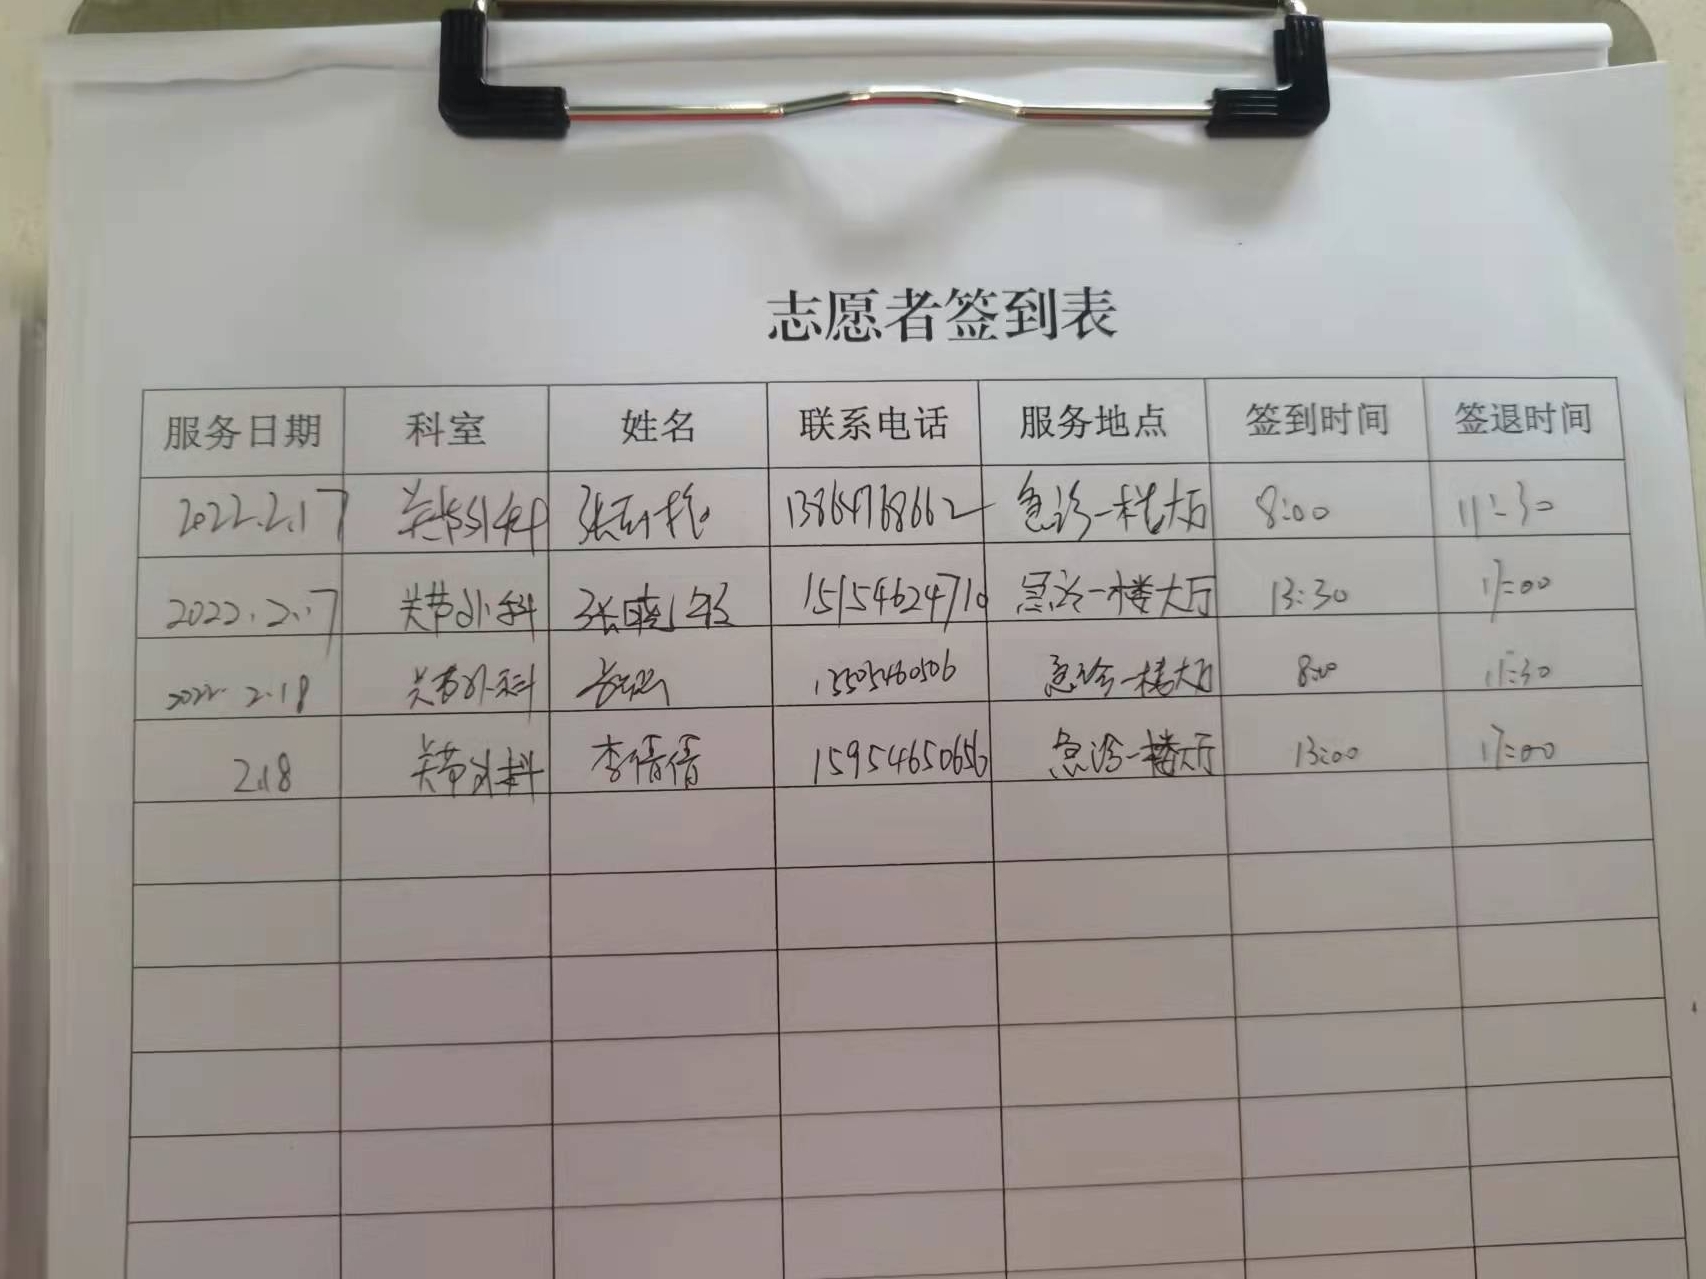 志愿者签到表
服务日期 科室 姓名 联系电话 服务地点 签到时间 签退时间
2022.2.17 关节外科 13864768662 急诊一楼大厅 8:00 11:30
2022.2.17 关节外科 张晓 15154624710 急诊一楼大厅 13:30 17:00
2022.2.18 关节外科 13505460506 急诊一楼大厅 8:00 11:30
2.18 关节外科 李倩倩 15954650656 急诊一楼大厅 13:00 17:00